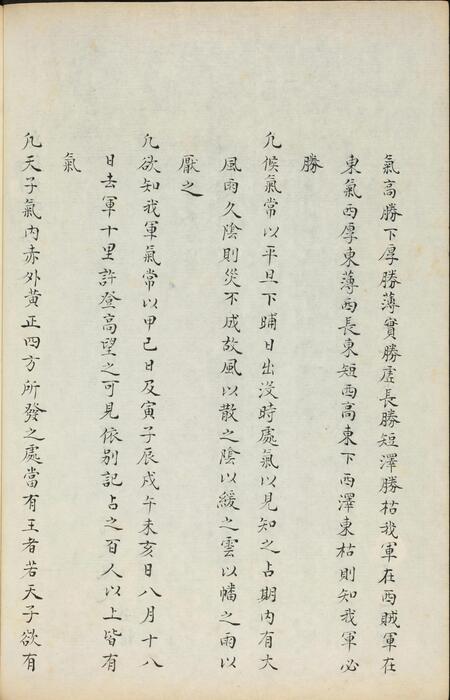 氣高勝下厚勝薄實勝虛長勝短澤勝枯我軍在西賊軍在
東氣西厚東薄西長東短西高東下西澤東枯則知我軍必
勝
凢候氣常以平旦下晡日出沒時處氣以見知之占期內有大
風雨久陰則災不成故風以散之陰以緩之雲以幡之雨以
厭之
凢欲知我軍氣常以甲己日及寅子辰戌午未亥日八月十八
日去軍十里許登高望之可見依别記占之百人以上皆有
氣
凢天子氣內赤外黃正四方所發之處當有王者若天子欲有